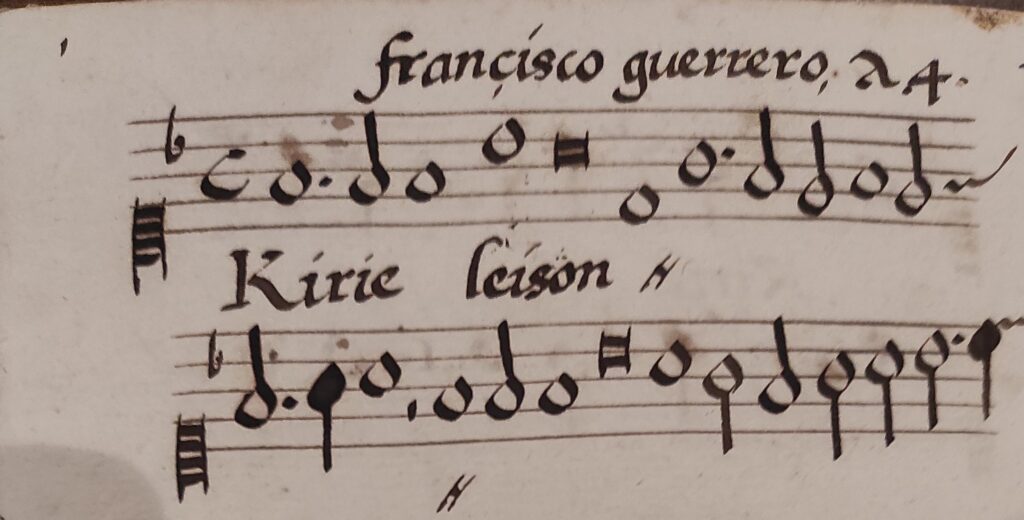 françisco guerrero, A 4.
Kirie leison